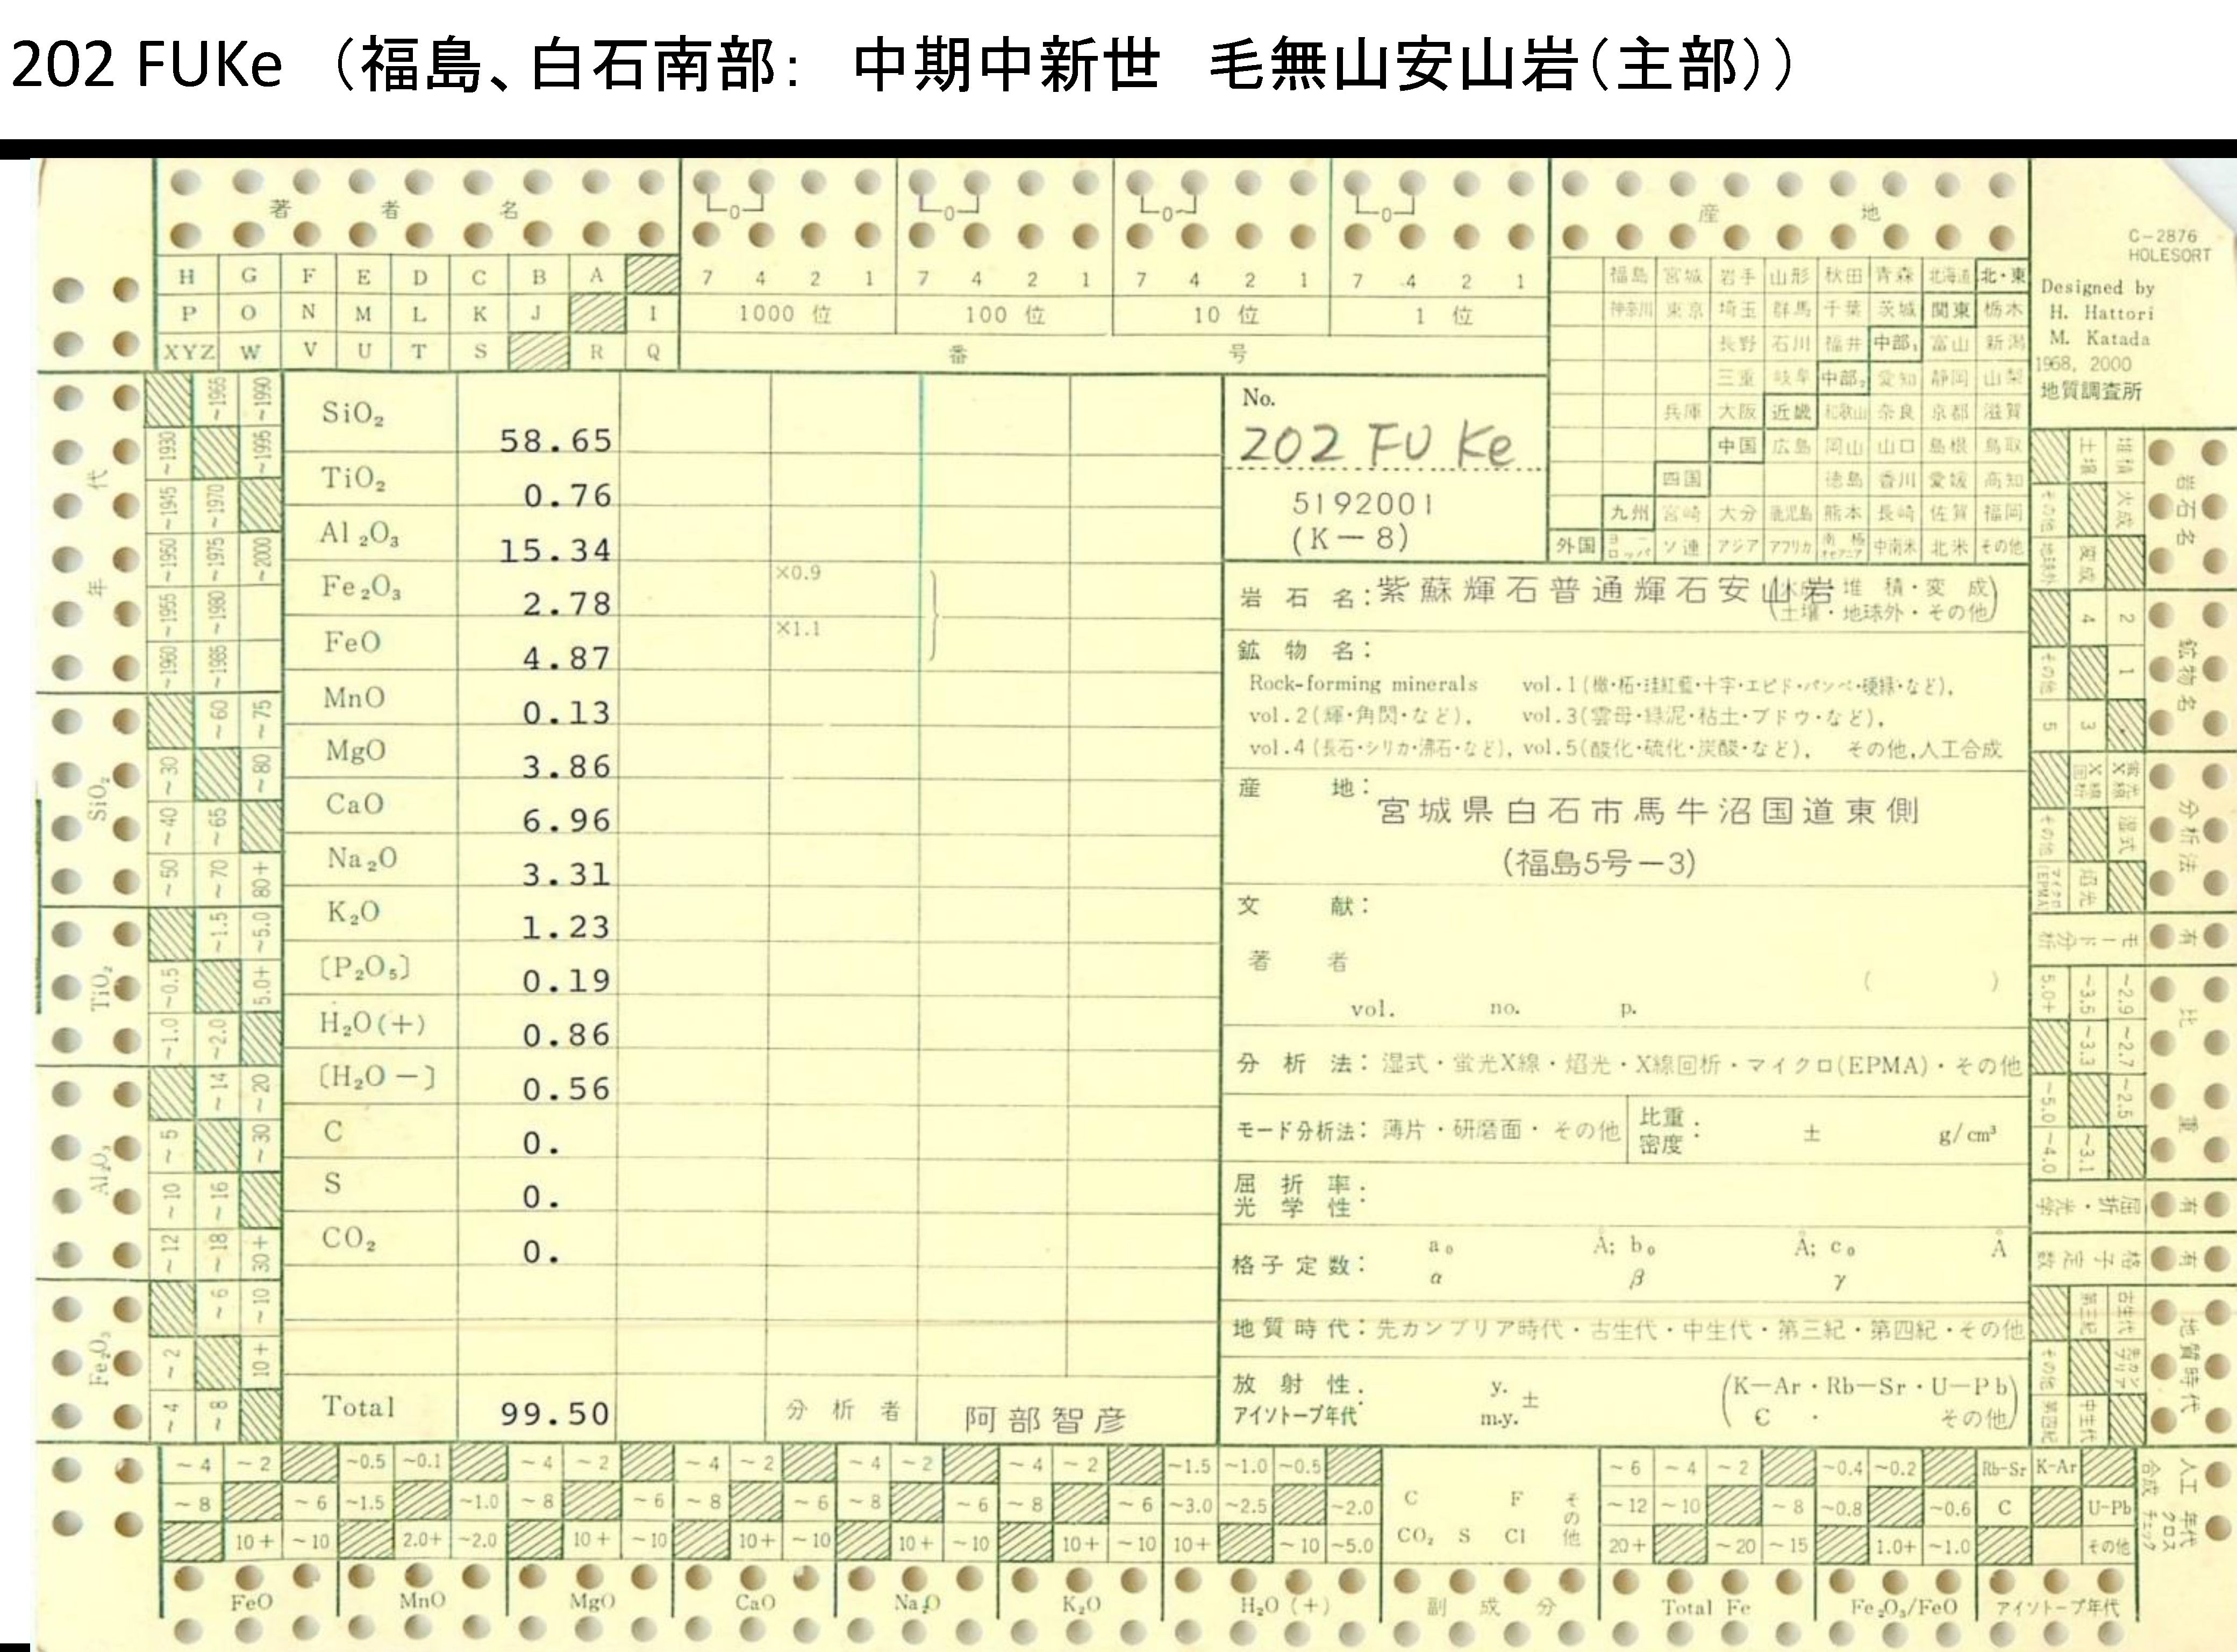 202 FUKe （福島、白石南部：　中期中新世　毛無山安山岩（主部））
著 者 名
H G F E D C B A
P O N M L K J I
XYZ W V U T S R Q
0 0 0 0
7 4 2 1 7 4 2 1 7 4 2 1 7 4 2 1
1000 位 100 位 10 位 1 位
番 号
産 地
福島 宮城 岩手 山形 秋田 青森 北海道 北・東
神奈川 東京 埼玉 群馬 千葉 茨城 関東 栃木
長野 石川 福井 中部₁ 富山 新潟
三重 岐阜 中部₂ 愛知 静岡 山梨
兵庫 大阪 近畿 和歌山 奈良 京都 滋賀
中国 広島 岡山 山口 島根 鳥取
四国 徳島 香川 愛媛 高知
九州 宮崎 大分 鹿児島 熊本 長崎 佐賀 福岡
外国 ヨーロッパ ソ連 アジア アフリカ 南極オセアニア 中南米 北米 その他
C-2876
HOLESORT
Designed by
H. Hattori
M. Katada
1968, 2000
地質調査所
年 代
~1965 ~1990
~1930 ~1995
~1945 ~1970
~1950 ~1975 ~2000
~1955 ~1980
~1960 ~1985
SiO₂
~60 ~75
~30 ~80
~40 ~65
~50 ~70 80+
TiO₂
~1.5 ~5.0
~0.5 5.0+
~1.0 ~2.0
Al₂O₃
~14 ~20
~5 ~30
~10 ~16
~12 ~18 30+
Fe₂O₃
~6 ~10
~2 10+
~4 ~8
SiO₂ 58.65
TiO₂ 0.76
Al₂O₃ 15.34
Fe₂O₃ 2.78 ×0.9
FeO 4.87 ×1.1
MnO 0.13
MgO 3.86
CaO 6.96
Na₂O 3.31
K₂O 1.23
〔P₂O₅〕 0.19
H₂O(+) 0.86
〔H₂O－〕 0.56
C 0.
S 0.
CO₂ 0.
Total 99.50 分 析 者 阿部智彦
No.
202 FU Ke
5192001
(K－8)
岩 石 名：紫蘇輝石普通輝石安山岩 (火成・堆 積・変 成
土壌・地球外・その他)
鉱 物 名：
Rock-forming minerals vol.1(橄・柘・珪紅藍・十字・エピド・パンペ・硬緑・など),
vol.2(輝・角閃・など), vol.3(雲母・緑泥・粘土・ブドウ・など),
vol.4(長石・シリカ・沸石・など), vol.5(酸化・硫化・炭酸・など), その他,人工合成
産 地：
宮城県白石市馬牛沼国道東側
(福島5号－3)
文 献：
著 者
( )
vol. no. p.
分 析 法：湿式・蛍光X線・焰光・X線回析・マイクロ(EPMA)・その他
モード分析法：薄片・研磨面・その他 比重 密度： ± g/cm³
屈 折 率：
光 学 性：
格子定数： a₀ Å; b₀ Å; c₀ Å
α β γ
地質時代：先カンブリア時代・古生代・中生代・第三紀・第四紀・その他
放 射 性： y. ± (K—Ar・Rb—Sr・U—Pb
アイソトープ年代 m.y. C ・ その他)
岩石名
堆積 土壌
火成 その他
変成 地球外
鉱物名
2 4
1 その他
3 5
分析法
蛍光X線 X線回析
湿式 その他
焰光 マイクロ(EPMA)
有 モード分析
比 重
~2.9 ~3.5 5.0+
~2.7 ~3.3
~2.5 ~5.0
~3.1 ~4.0
有 屈折・光学
有 格子定数
地質時代
古生代 第三紀
先カンブリア その他
中生代 第四紀
~4 ~2 ~0.5 ~0.1 ~4 ~2 ~4 ~2 ~4 ~2 ~4 ~2 ~1.5 ~1.0 ~0.5 ~6 ~4 ~2 ~0.4 ~0.2 Rb-Sr K-Ar
~8 ~6 ~1.5 ~1.0 ~8 ~6 ~8 ~6 ~8 ~6 ~8 ~6 ~3.0 ~2.5 ~2.0 C F その他 ~12 ~10 ~8 ~0.8 ~0.6 C U-Pb
10+ ~10 2.0+ ~2.0 10+ ~10 10+ ~10 10+ ~10 10+ ~10 10+ ~10 ~5.0 CO₂ S Cl 20+ ~20 ~15 1.0+ ~1.0 その他
人工合成 年代クロスチェック
FeO MnO MgO CaO Na₂O K₂O H₂O(+) 副 成 分 Total Fe Fe₂O₃/FeO アイソトープ年代